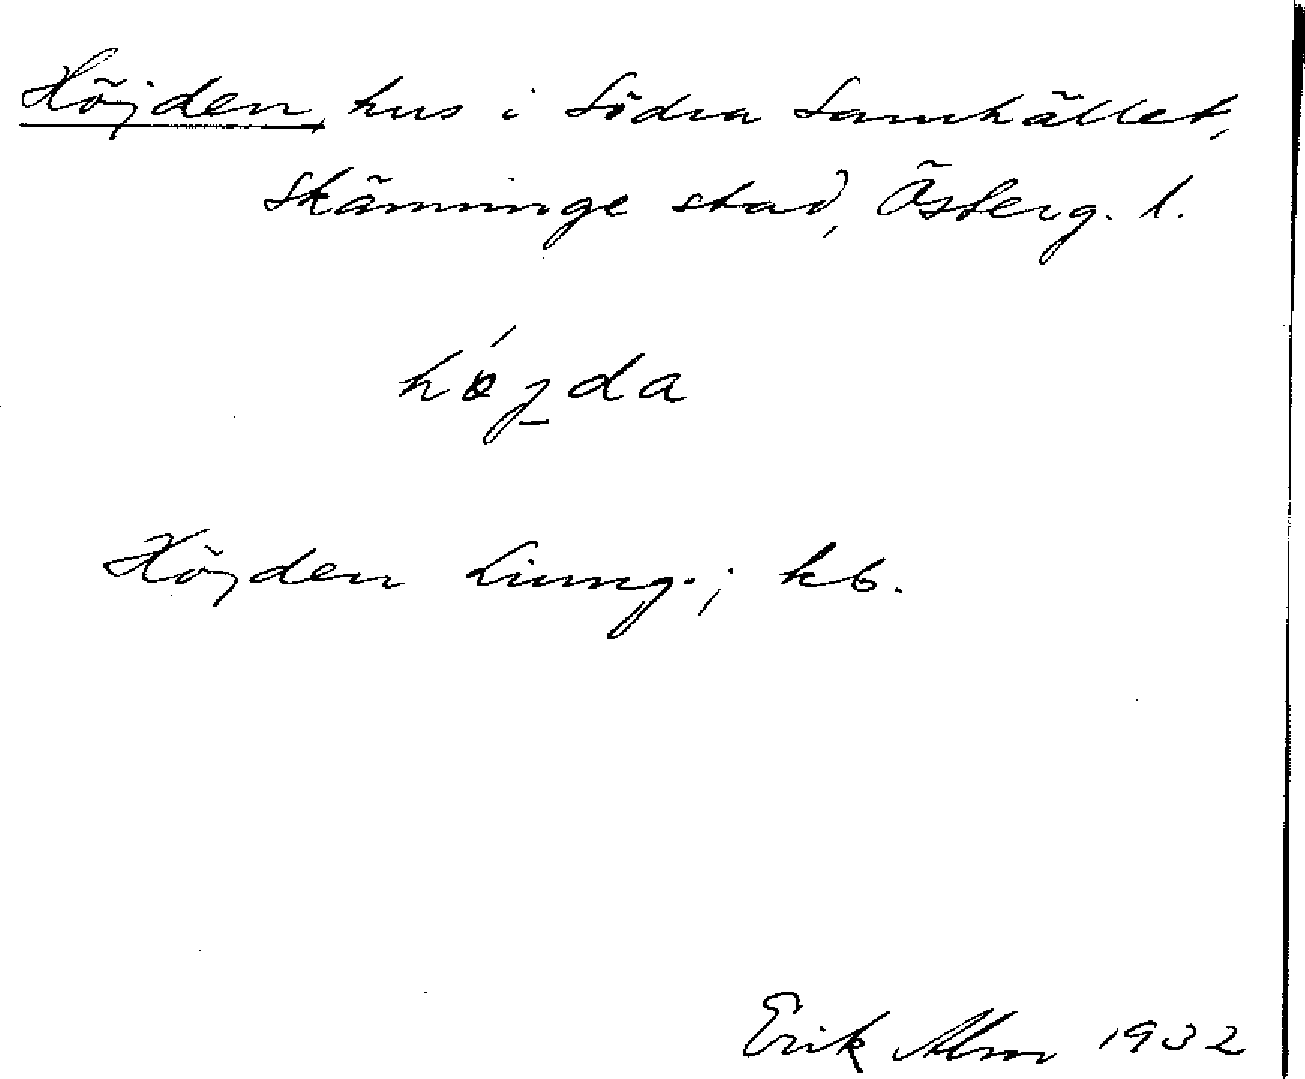 Höjden, hus i Södra Samhället,
Skänninge stad, Österg. l.
höjda
Höjden Liung.; kb.
Erik Alm 1932